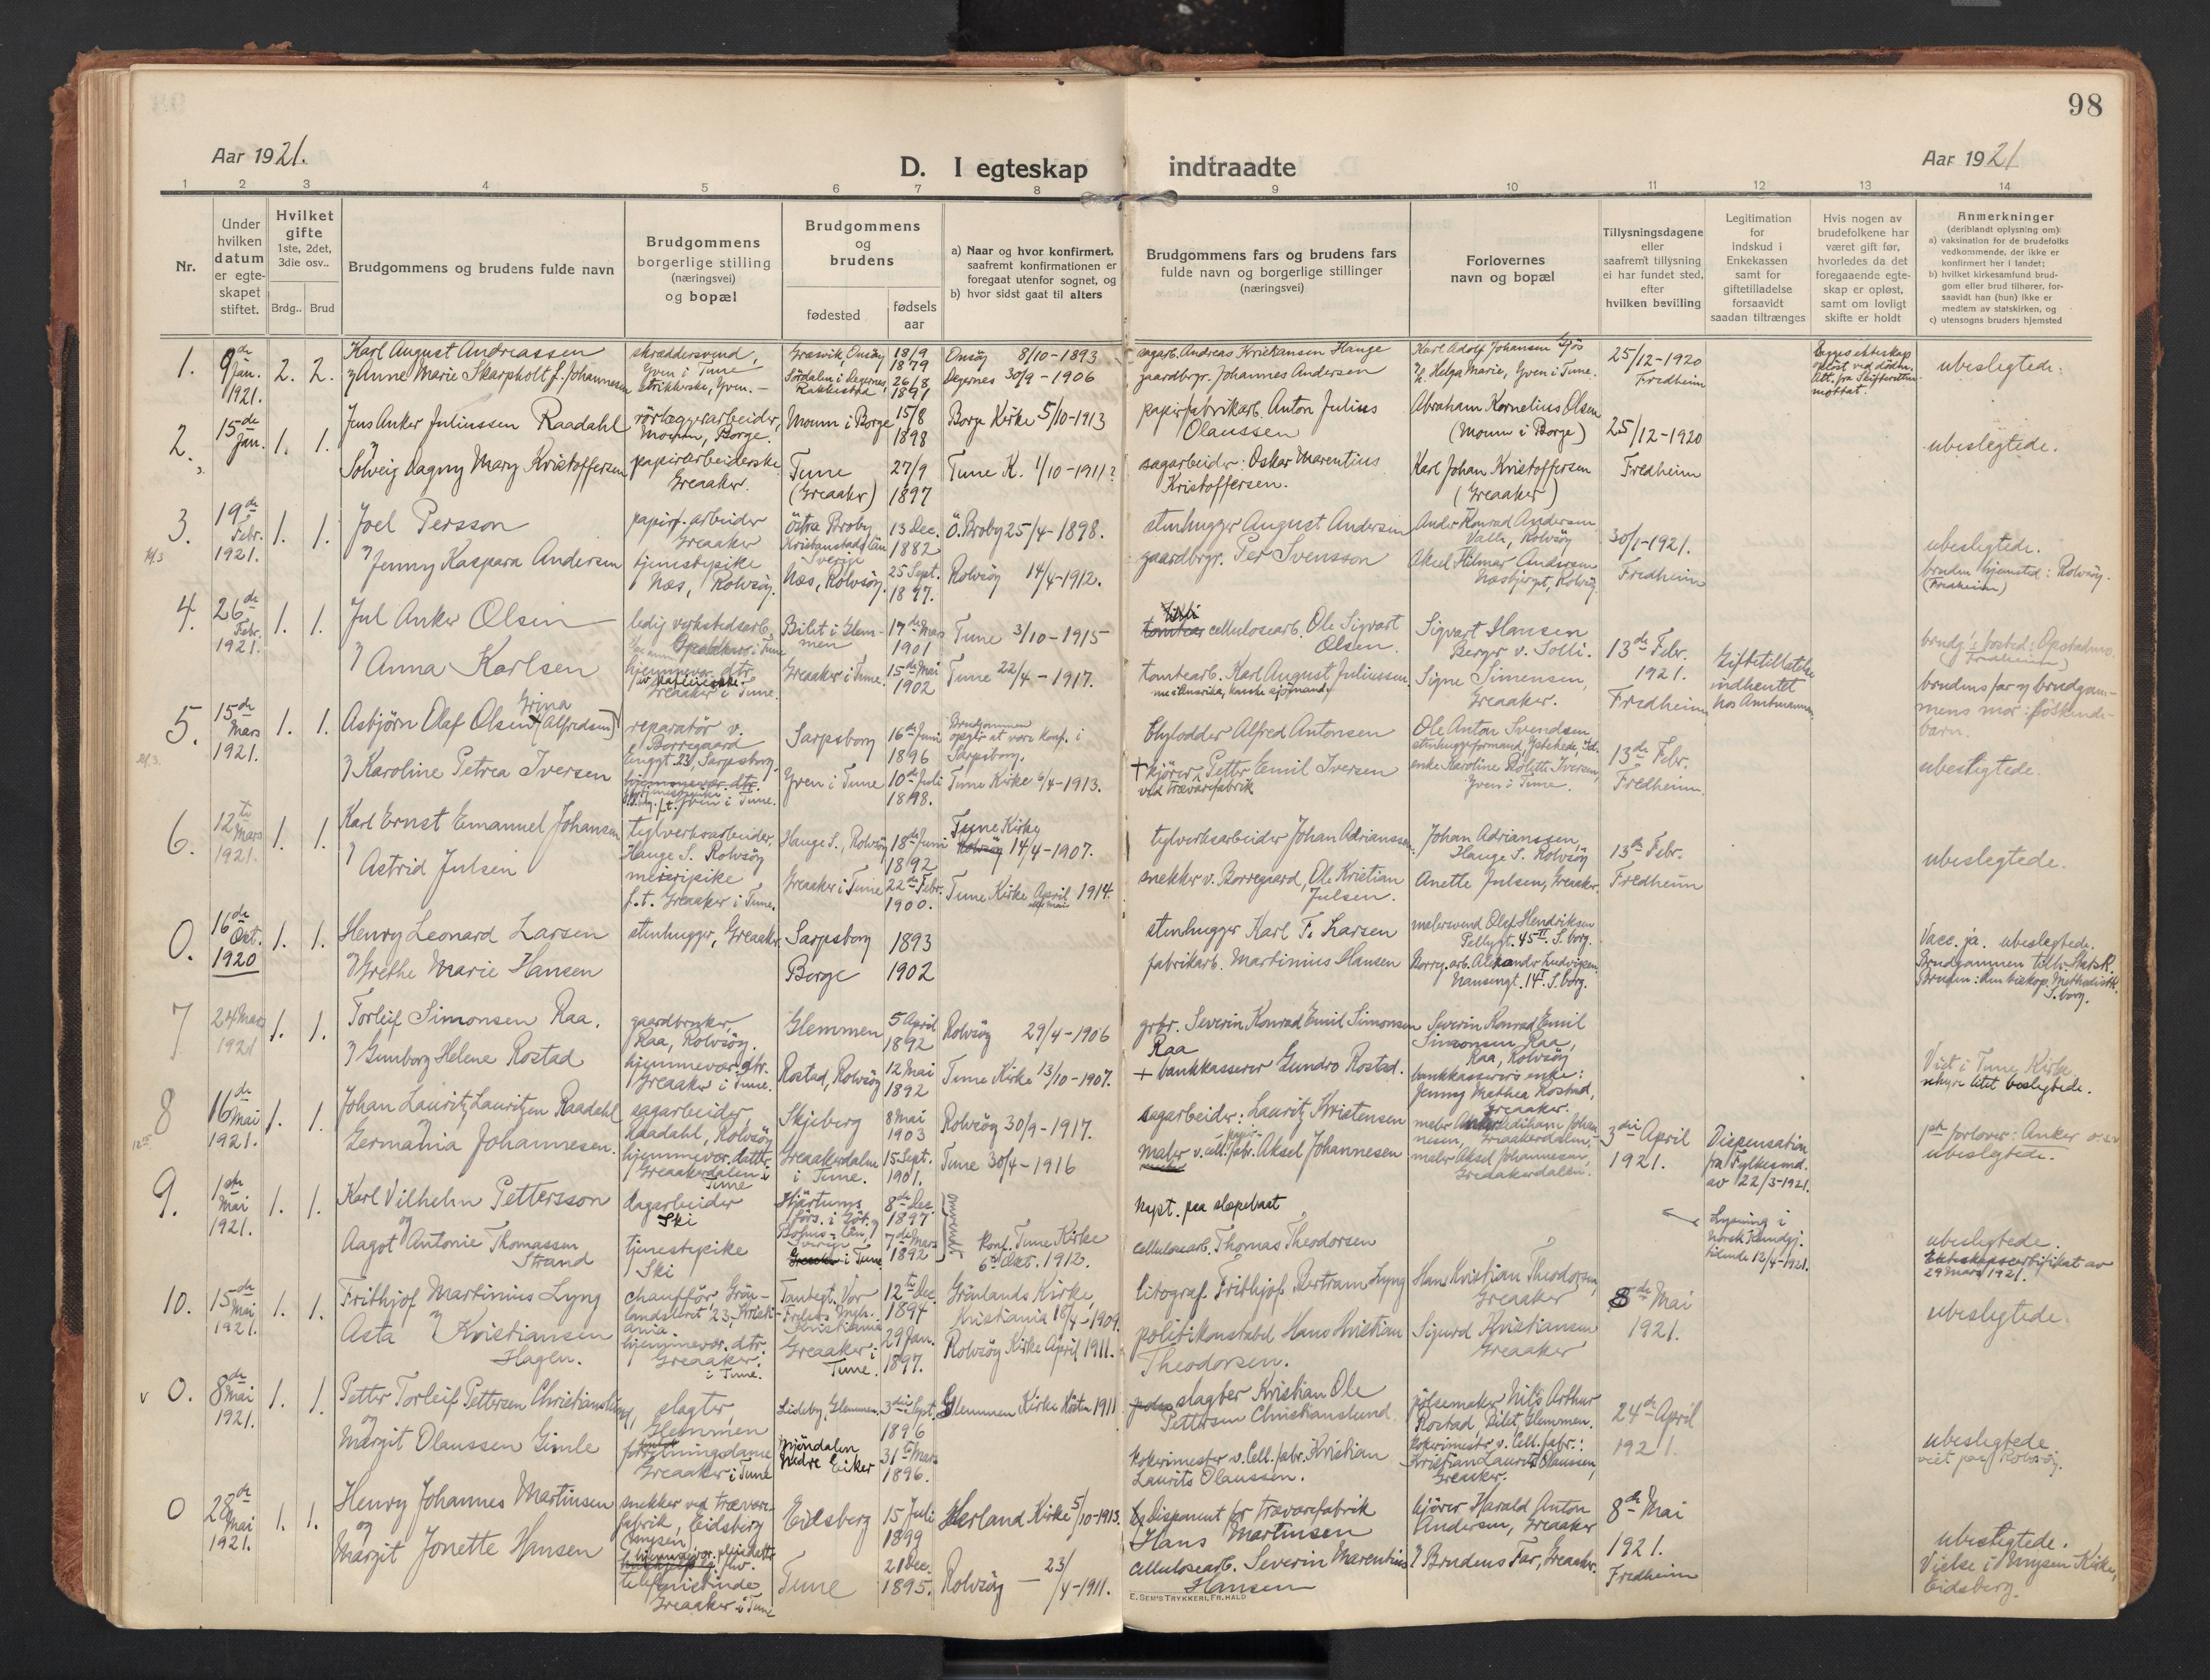 98
Aar 1921.
D. I egteskap indtraadte
Aar 1921
1 2 3 4 5 6 7 8 9 10 11 12 13 14
Nr.
Under hvilken datum er egteskapet stiftet.
Hvilket gifte
1ste, 2det, 3die osv..
Brdg.. Brud
Brudgommens og brudens fulde navn
Brudgommens borgerlige stilling (næringsvei) og bopæl
Brudgommens og brudens
fødested
fødsels aar
a) Naar og hvor konfirmert, saafremt konfirmationen er foregaat utenfor sognet, og
b) hvor sidst gaat til alters
Brudgommens fars og brudens fars fulde navn og borgerlige stillinger (næringsvei)
Forlovernes navn og bopæl
Tillysningsdagene eller saafremt tillysning ei har fundet sted, efter hvilken bevilling
Legitimation for indskud i Enkekassen samt for giftetilladelse forsaavidt saadan tiltrænges
Hvis nogen av brudefolkene har været gift før, hvorledes da det foregaaende egteskap er opløst, samt om lovligt skifte er holdt
Anmerkninger (deriblandt oplysning om):
a) vaksination for de brudefolks vedkommende, der ikke er konfirmert her i landet;
b) hvilket kirkesamfund brudgom eller brud tilhører, forsaavidt han (hun) ikke er medlem av statskirken, og
c) utensogns bruders hjemsted
1. 9de Jan. 1921. 2. 2.
Karl August Andreassen
Anne Marie Skarpholt f. Johannesen
skræddersvend, Yven i Tune
strikkerske, Yven.
Græsvik, Onsøy 18/9 1879
26/8 1891
Onsøy 8/10-1893
Degernes 30/9-1906
sagarb. Andreas Kristiansen Hauge
gaardbrgr. Johannes Andersen
Karl Adolf Johansen
Helga Marie, Yven i Tune.
25/12-1920
Fredheim
ubeslegtede.
2. 15de Jan. 1. 1.
Jens Anker Juliussen Raadahl
Solveig Dagny Mary Kristoffersen
rørlæggerarbeider, Moum, Borge.
papirarbeiderske Greaaker.
Moum i Borge 15/8 1898
Tune (Greaaker) 27/9 1897
Borge Kirke 5/10-1913
Tune K. 1/10-1911?
papirfabrikarb. Anton Julius Olaussen
sagarbeider: Oskar Marentius Kristoffersen.
Abraham Kornelius Olsen (Moum i Borge)
Karl Johan Kristoffersen (Greaaker)
25/12-1920
Fredheim
ubeslegtede.
3. 19de Febr. 1921. 1. 1.
Joel Persson
Jenny Kaspara Andersen
papirf. arbeider Greaaker
tjenestepike Næs, Rolvsøy.
Östra Broby Kristianstads län Sverige 13 Dec. 1882
Næs, Rolvsøy. 25 Sept. 1897.
Ö. Broby 25/4-1898.
Rolvsøy 14/4-1912.
stenhugger August Andersen
gaardbrgr. Per Svensson
Anders Konrad Andersen Valle, Rolvsøy
Aksel Hilmar Andersen
30/1-1921.
Fredheim
ubeslegtede.
bruden hjemsted: Rolvsøy.
(Fredheim)
4. 26de Febr. 1921. 1. 1.
Jul Anker Olsen
Anna Karlsen
ledig verkstedsarb.
hjemmevær. dtr.
Greaaker i Tune.
Bilet i Glemmen 17de Mars 1901
Greaaker i Tune. 15de Mai 1902
Tune 3/10-1915
Tune 22/4-1917.
cellulosearb. Ole Sigvart Olsen.
tomtearb. Karl August Juliussen.
Sigvart Hansen Berger v. Solli.
Signe Simensen, Greaaker.
13de Febr. 1921.
Fredheim
Giftetilladelse indhentet hos Amtmannen
brudens far og brudgommens mor: søskendebarn.
5. 15de Mars 1921. 1. 1.
Asbjørn Olaf Olsen (Alfredsen)
Karoline Petrea Iversen
reparatør v. Borregaard
Enggt. 23, Sarpsborg.
Yven i Tune.
Sarpsborg 16de Juni 1896
Yven i Tune 10de Juli 1898.
Brudgommen opgir at være konf. i Sarpsborg.
Tune Kirke 6/4-1913.
Alfred Antonsen
+ kjører Petter Emil Iversen ved trævarefabrik
Ole Anton Svendsen
enke Karoline Iversen, Yven i Tune.
13de Febr.
Fredheim.
ubeslegtede.
6. 12te Mars 1921. 1. 1.
Karl Ernst Emanuel Johansen
Astrid Julsen
teglverksarbeider, Hauge S. Rolvsøy
meieripike f.t. Greaaker i Tune.
Hauge S., Rolvsøy 18de Juni 1892
Greaaker i Tune 22de Febr. 1900.
Tune Kirke 14/4-1907.
Tune Kirke April 1914.
teglverksarbeider Johan Adrianssen
snekker v. Borregaard, Ole Kristian Julsen.
Johan Adrianssen, Hauge S. Rolvsøy
Anette Julsen, Greaaker.
13de Febr.
Fredheim
ubeslegtede.
0. 16de Okt. 1920 1. 1.
Henry Leonard Larsen
Grethe Marie Hansen
stenhugger, Greaaker
Sarpsborg 1893
Borge 1902
stenhugger Karl F. Larsen
fabrikarb. Martinius Hansen
malersvend Olaf Hendriksen Pellygt. 45 II. S.borg.
Borreg. arb. Aleksander Ludvigsen Nansengt. 14 I. S.borg.
Vacc. ja. ubeslegtede.
Brudgommen tilh. StatsK.
Bruden: den biskop. Methodistk. S.borg.
7 24 Mars 1921 1. 1.
Torleif Simonsen Raa.
Gunborg Helene Rostad
gaardbruker, Raa, Rolvsøy.
hjemmevær. dtr. Greaaker i Tune.
Glemmen 5 April 1892
Rostad, Rolvsøy 12 Mai 1892
Rolvsøy 29/4-1906
Tune Kirke 13/10-1907.
grbr. Severin Konrad Emil Simonsen Raa
+ bankkasserer Gundro Rostad.
Severin Konrad Emil Simonsen Raa, Raa, Rolvsøy
bankkasserers enke: Jenny Mathea Rostad, Greaaker.
Viet i Tune Kirke,
litet beslegtede.
8 16de Mai 1921. 1. 1.
Johan Lauritz Lauritzen Raadahl
Germania Johannesen.
sagarbeider, Raadahl, Rolvsøy
hjemmevær. datter, Greaakerdalen i Tune
Skjeberg 8 Mai 1903
Greaakerdalen i Tune. 15 Sept. 1901.
Rolvsøy 30/9-1917.
Tune 30/4-1916
sagarbeider: Lauritz Kristensen
maler v. cell. papirfabr. Aksel Johannesen
maler Anker Johannesen, Greaakerdalen,
maler Aksel Johannesen, Greaakerdalen.
3die April 1921.
Dispensation fra Fylkesmd. av 22/3-1921.
1ste forlover: Anker
ubeslegtede.
9. 1ste Mai 1921. 1. 1.
Karl Vilhelm Pettersson
og
Aagot Antonie Thomassen Strand
dagarbeider Ski
tjenestepike Ski
Hjärtums förs. i Göt. og Bohus län, Sverige 8de Dec. 1897
i Tune 7de Mars 1892
omvendt
Konf. Tune Kirke 6te Okt. 1912.
paa slæpebaat
cellulosearb. Thomas Theodorsen
Lysning i Norsk Kundgj. tidende 12/4-1921.
ubeslegtede.
Ekteskapscertifikat av 29 Mars 1921.
10. 15de Mai 1921. 1. 1.
Frithjof Martinius Lyng
Asta Kristiansen Hagen.
chauffør, Grønlandsleret 23, Kristiania.
hjemmevær. dtr. Greaaker i Tune.
Tøntegt. Vor Frelses Mgh. Kristiania 12te Dec. 1894
Greaaker i Tune. 29 Jan. 1897.
Grønlands Kirke, Kristiania 18/4-1909.
Rolvsøy Kirke April 1911.
litograf. Frithjof Bertram Lyng
politikonstabel Hans Kristian Theodorsen.
Hans Kristian Theodorsen, Greaaker
Sigurd Kristiansen Greaaker
8de Mai 1921.
ubeslegtede.
v 0. 8de Mai 1921. 1. 1.
Petter Torleif Pettersen Christianslund
og
Margit Olaussen Gimle
slagter, Glemmen
forretningsdame Greaaker i Tune
Lideby, Glemmen. 3die Sept. 1896
Mjøndalen Nedre Eiker 31te Mars 1896.
Glemmen Kirke Høsten 1911
slagter Kristian Ole Pettersen Christianslund.
kokerimester v. Cell. fabr. Kristian Laurits Olaussen.
pølsemaker Nils Arthur Rostad, Bilet, Glemmen.
kokerimester v. Cell. fabr.: Kristian Laurits Olaussen, Greaaker.
24de April 1921.
ubeslegtede
viet paa Rolvsøy.
0 28de Mai 1921. 1. 1.
Henry Johannes Martinsen
og
Margit Jonette Hansen
snekker ved trævarefabrik, Eidsberg (Mysen)
telefonistinde Greaaker i Tune
Eidsberg 15 Juli 1899
Tune 21 Dec. 1895.
Hærland Kirke 5/10-1913.
Rolvsøy – 23/4-1911.
Disponent for trævarefabrik Hans Martinsen
cellulosearb. Severin Marentius Hansen
kjører Harald Anton Andersen, Greaaker
Brudens Far, Greaaker.
8de Mai 1921.
Fredheim
ubeslegtede.
Vielse i Mysen Kirke, Eidsberg.
E. SEM'S TRYKKERI, FR.HALD